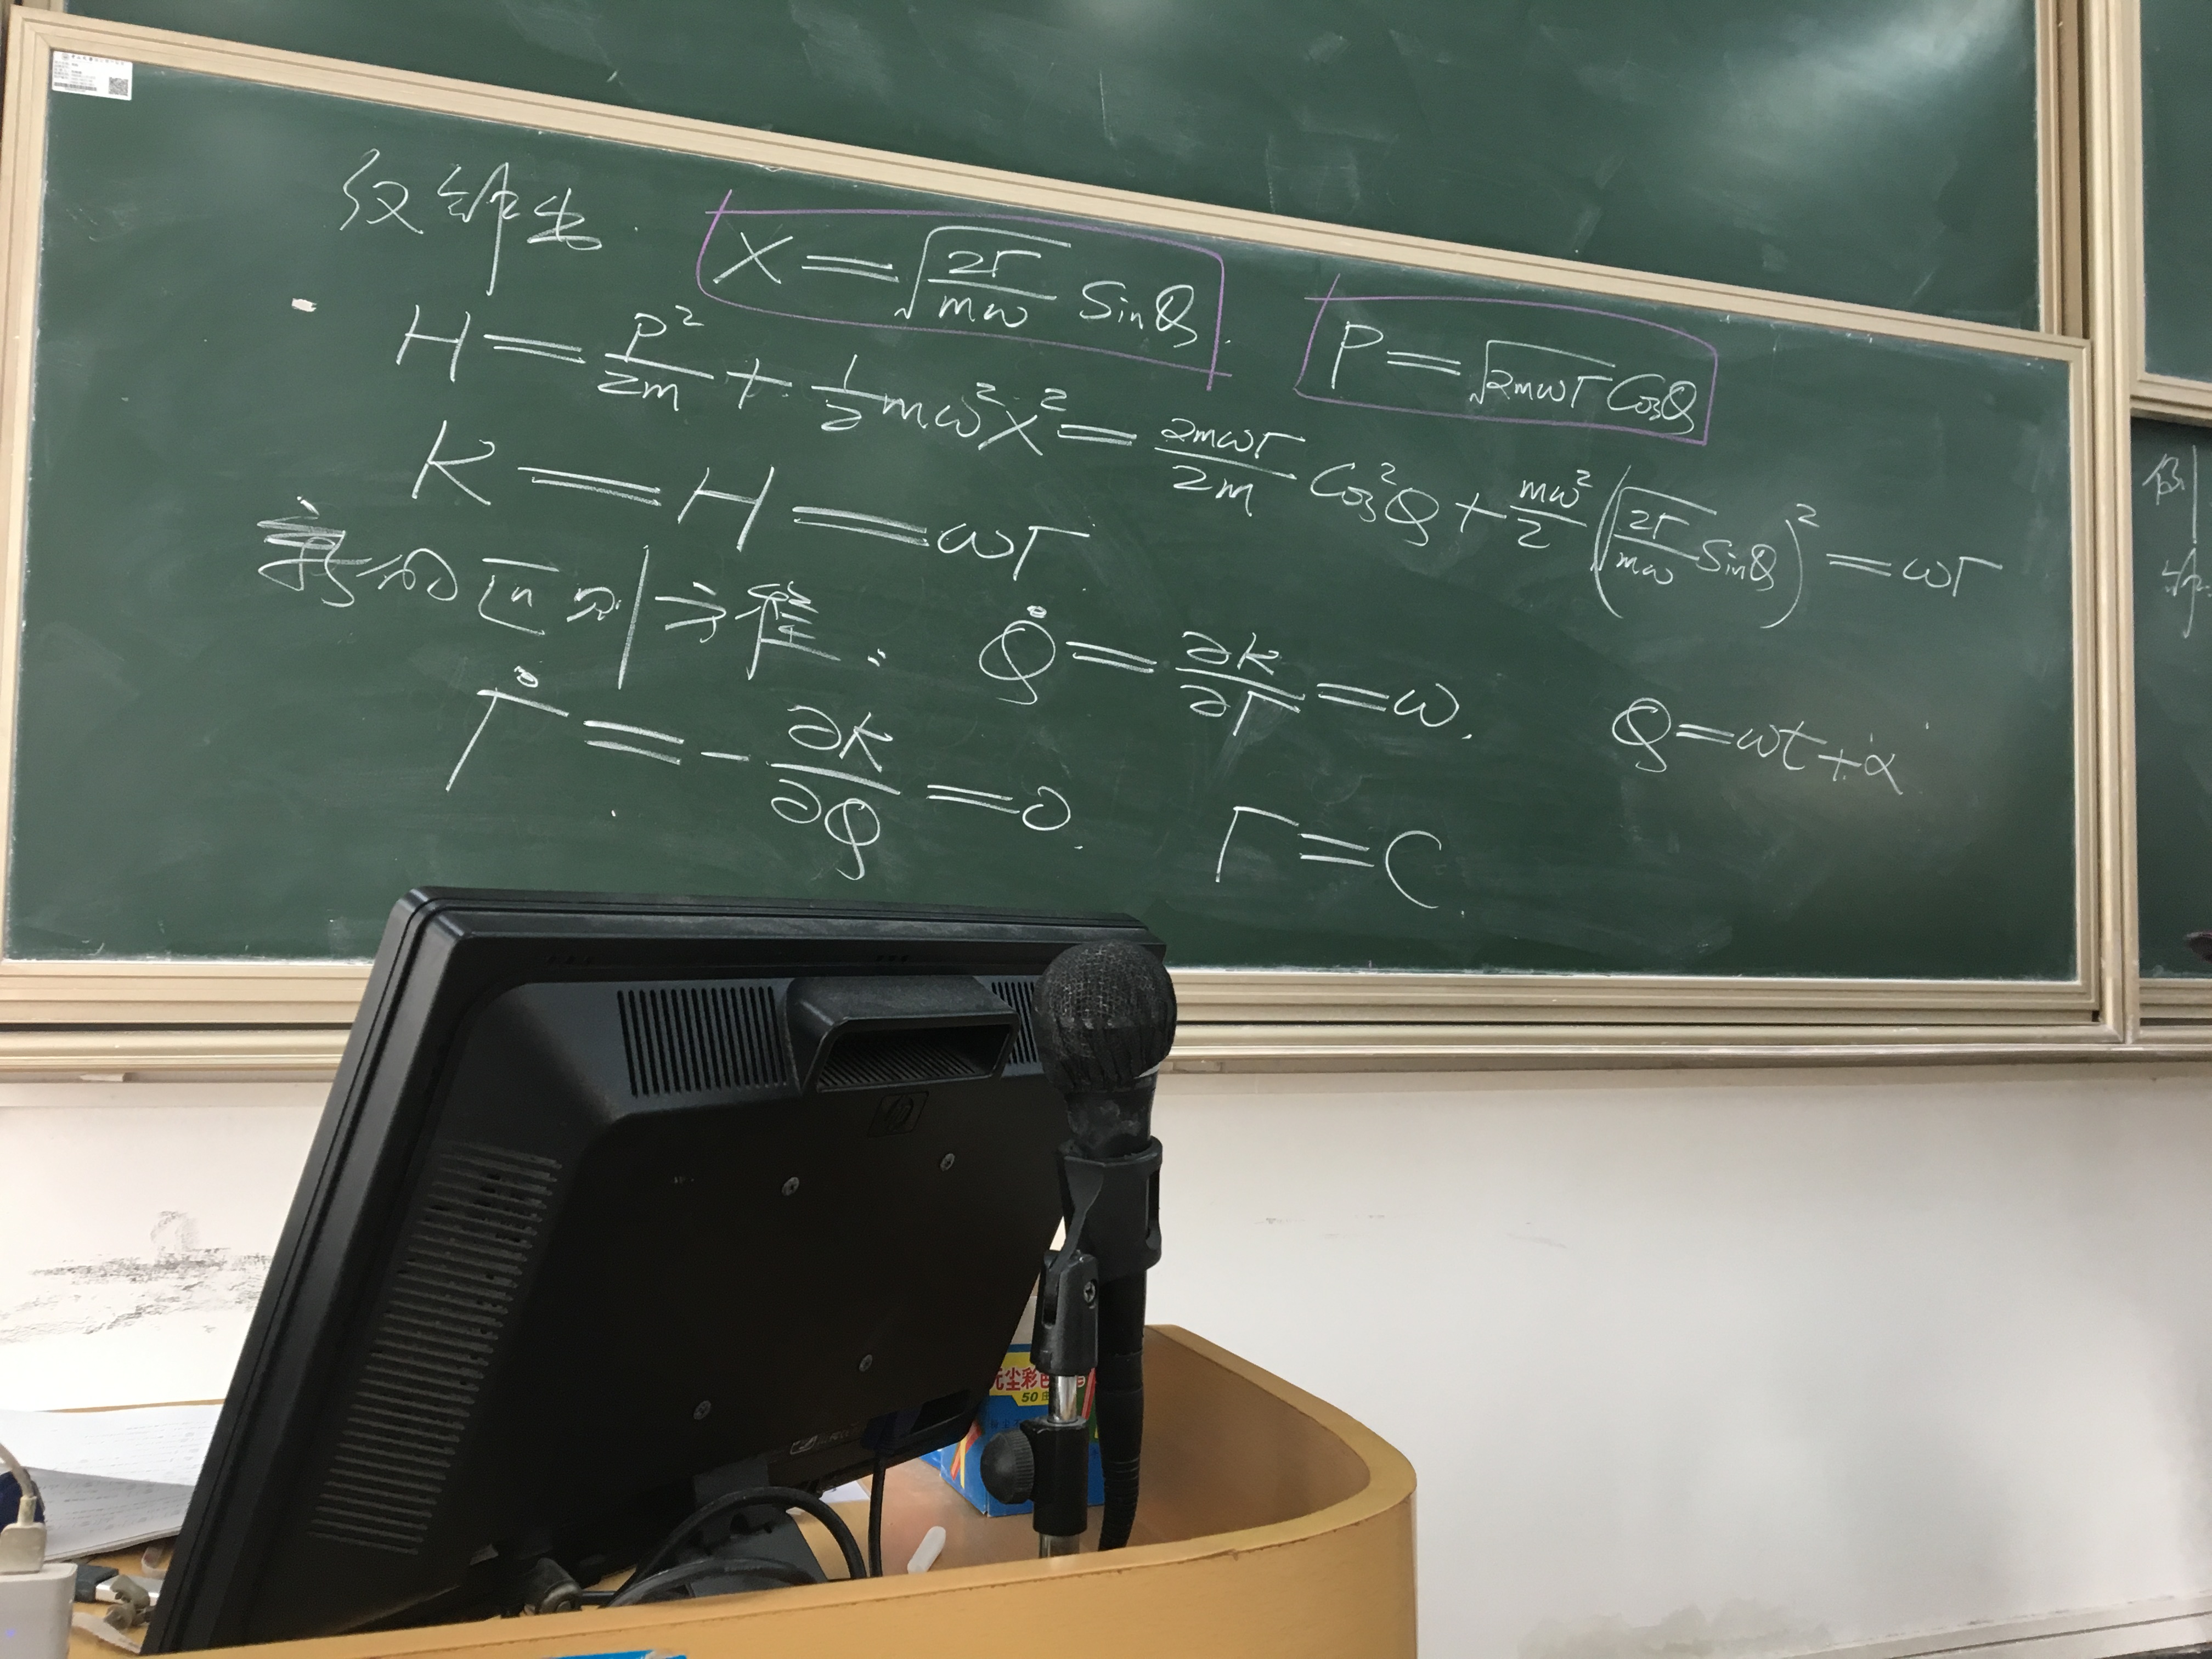 仅给出. X = √(2Γ/mω) SinQ. P = √(2mωΓ) CosQ
H = P²/2m + 1/2 mω²X² = 2mωΓ/2m Cos²Q + mω²/2 (√(2Γ/mω) SinQ)² = ωΓ
K = H = ωΓ.
新的正则方程: Q̇ = ∂K/∂Γ = ω. Q = ωt + α
Γ̇ = -∂K/∂Q = 0. Γ = C.
无尘彩色
50